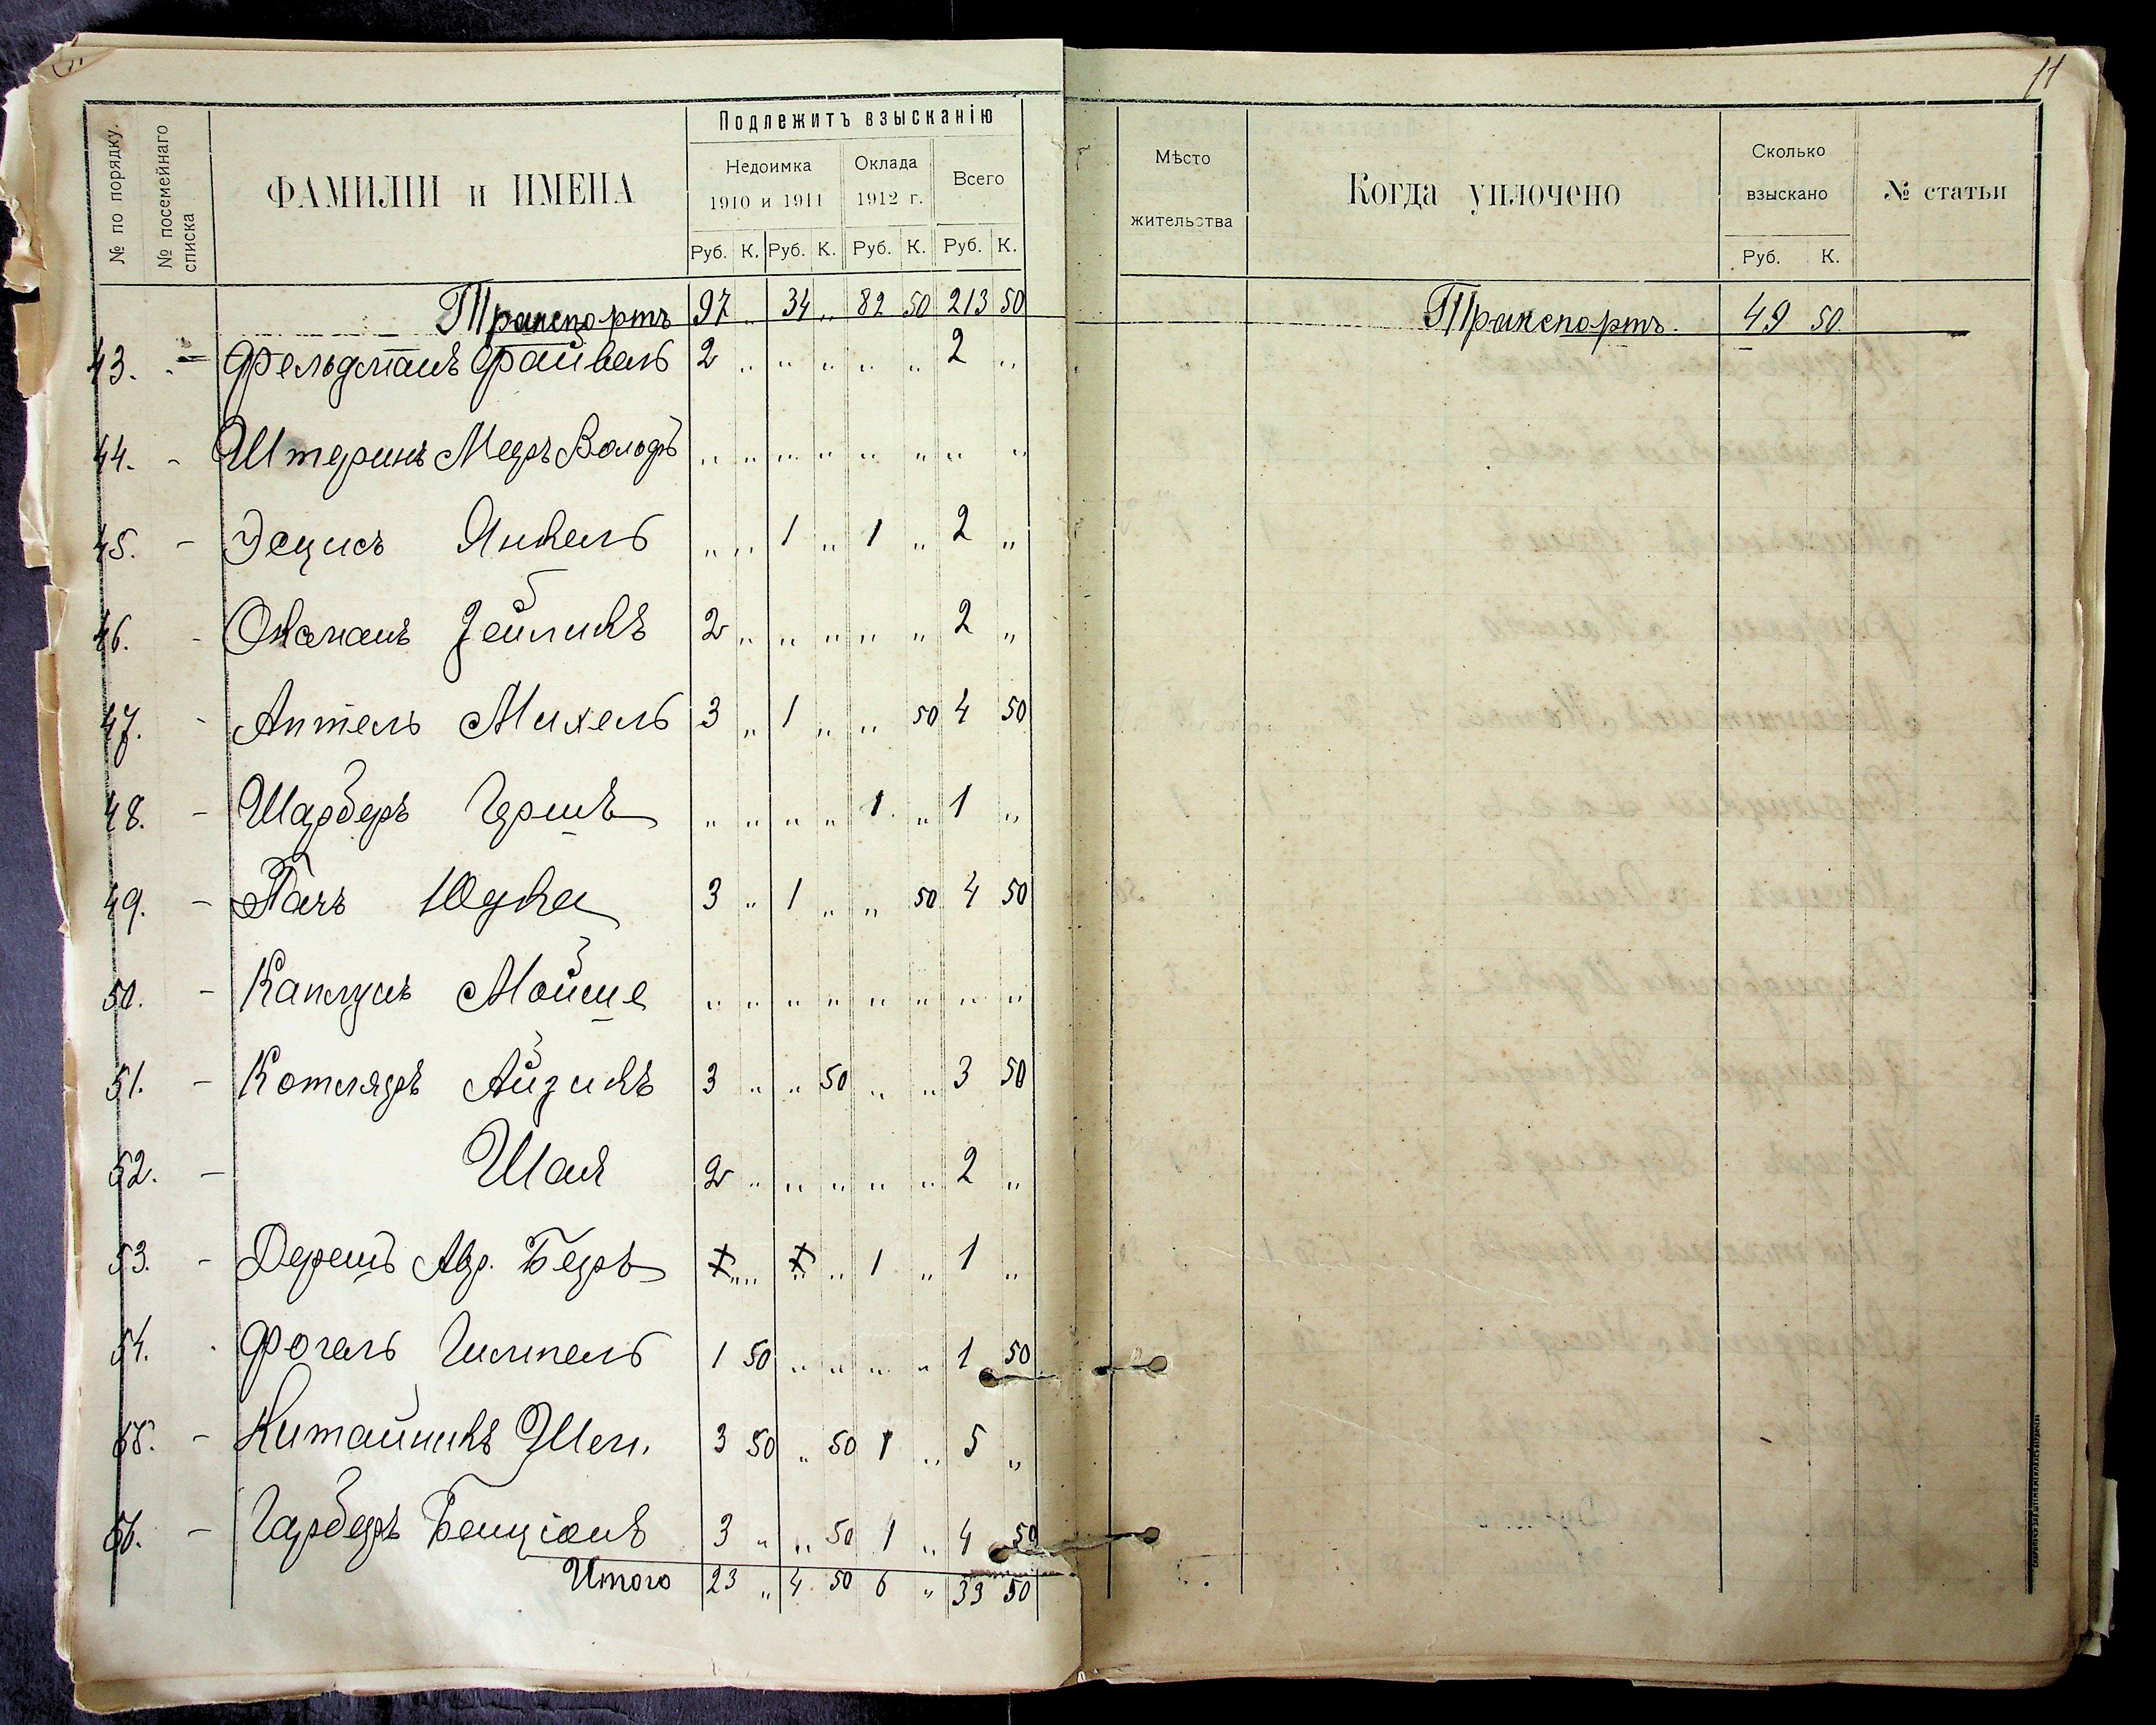 11
Подлежитъ взысканію
№ по порядку.
№ посемейнаго списка
ФАМИЛІИ и ИМЕНА
Недоимка
1910 и 1911
Оклада
1912 г.
Всего
Руб. К. Руб. К. Руб. К. Руб. К.
Транспортъ 97 „ 34 „ 82 50 213 50
43. - Фельдманъ Файвель 2 „ „ „ „ „ 2 „
44. - Штеринъ Мееръ Вольфъ „ „ „ „ „ „ „ „
45. - Эсцисъ Янкель „ „ 1 „ 1 „ 2 „
46. - Окманъ Зейликъ 2 „ „ „ „ „ 2 „
47. - Аптель Михель 3 „ 1 „ „ 50 4 50
48. - Шарберъ Гершъ „ „ „ „ 1 „ 1 „
49. - Пачъ Юдка 3 „ 1 „ „ 50 4 50
50. - Каплунъ Мойше „ „ „ „ „ „ „ „
51. - Котляръ Айзикъ 3 „ „ 50 „ „ 3 50
52. - Шая 2 „ „ „ „ „ 2 „
53. - Дерешъ Авр. Беръ „ „ „ 1 „ 1 „
54. Фогель Гимпель 1 50 „ „ „ „ 1 50
55. - Китайникъ Шен. 3 50 „ 50 1 „ 5 „
56. - Гарберъ Бенціонъ 3 „ „ 50 1 „ 4 50
Итого 23 „ 4 50 6 „ 33 50
Мѣсто
жительства
Когда уплочено
Сколько
взыскано
Руб. К.
№ статьи
Транспортъ. 49 50